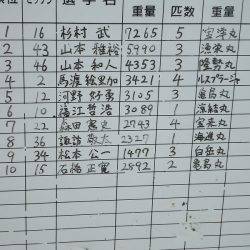 選手名 重量 匹数
1 16 杉村 武 7265 5 宝洋丸
2 43 山本 雅裕 5990 3 漁栄丸
3 44 山本 和人 4353 3 隆勢丸
4 2 馬渡 絵里加 3421 4
5 12 河野 好勇 3105 3 亀島丸
6 10 福江 哲浩 3089 1
7 22 森田 憲史 2743 4 宝来丸
8 36 諏訪 敬太 2327 1 海進丸
9 34 松本 公一 1477 3 白岳丸
10 15 石橋 正寛 2892 2 亀島丸